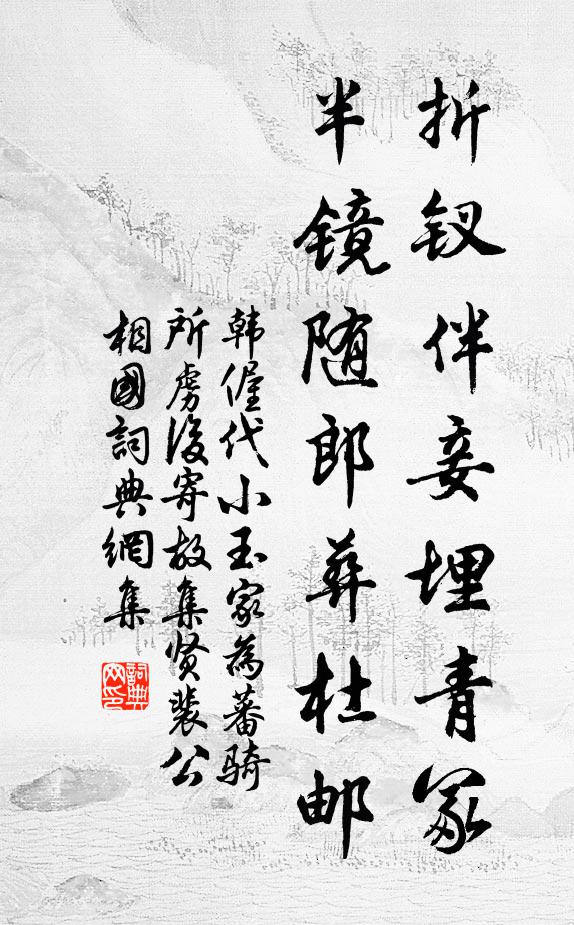 折钗伴妾埋青冢
半镜随郎葬杜邮
韩偓代小玉家為蕃骑
所虏後寄故集贤裴公
相國詞典網集
詞典
网印